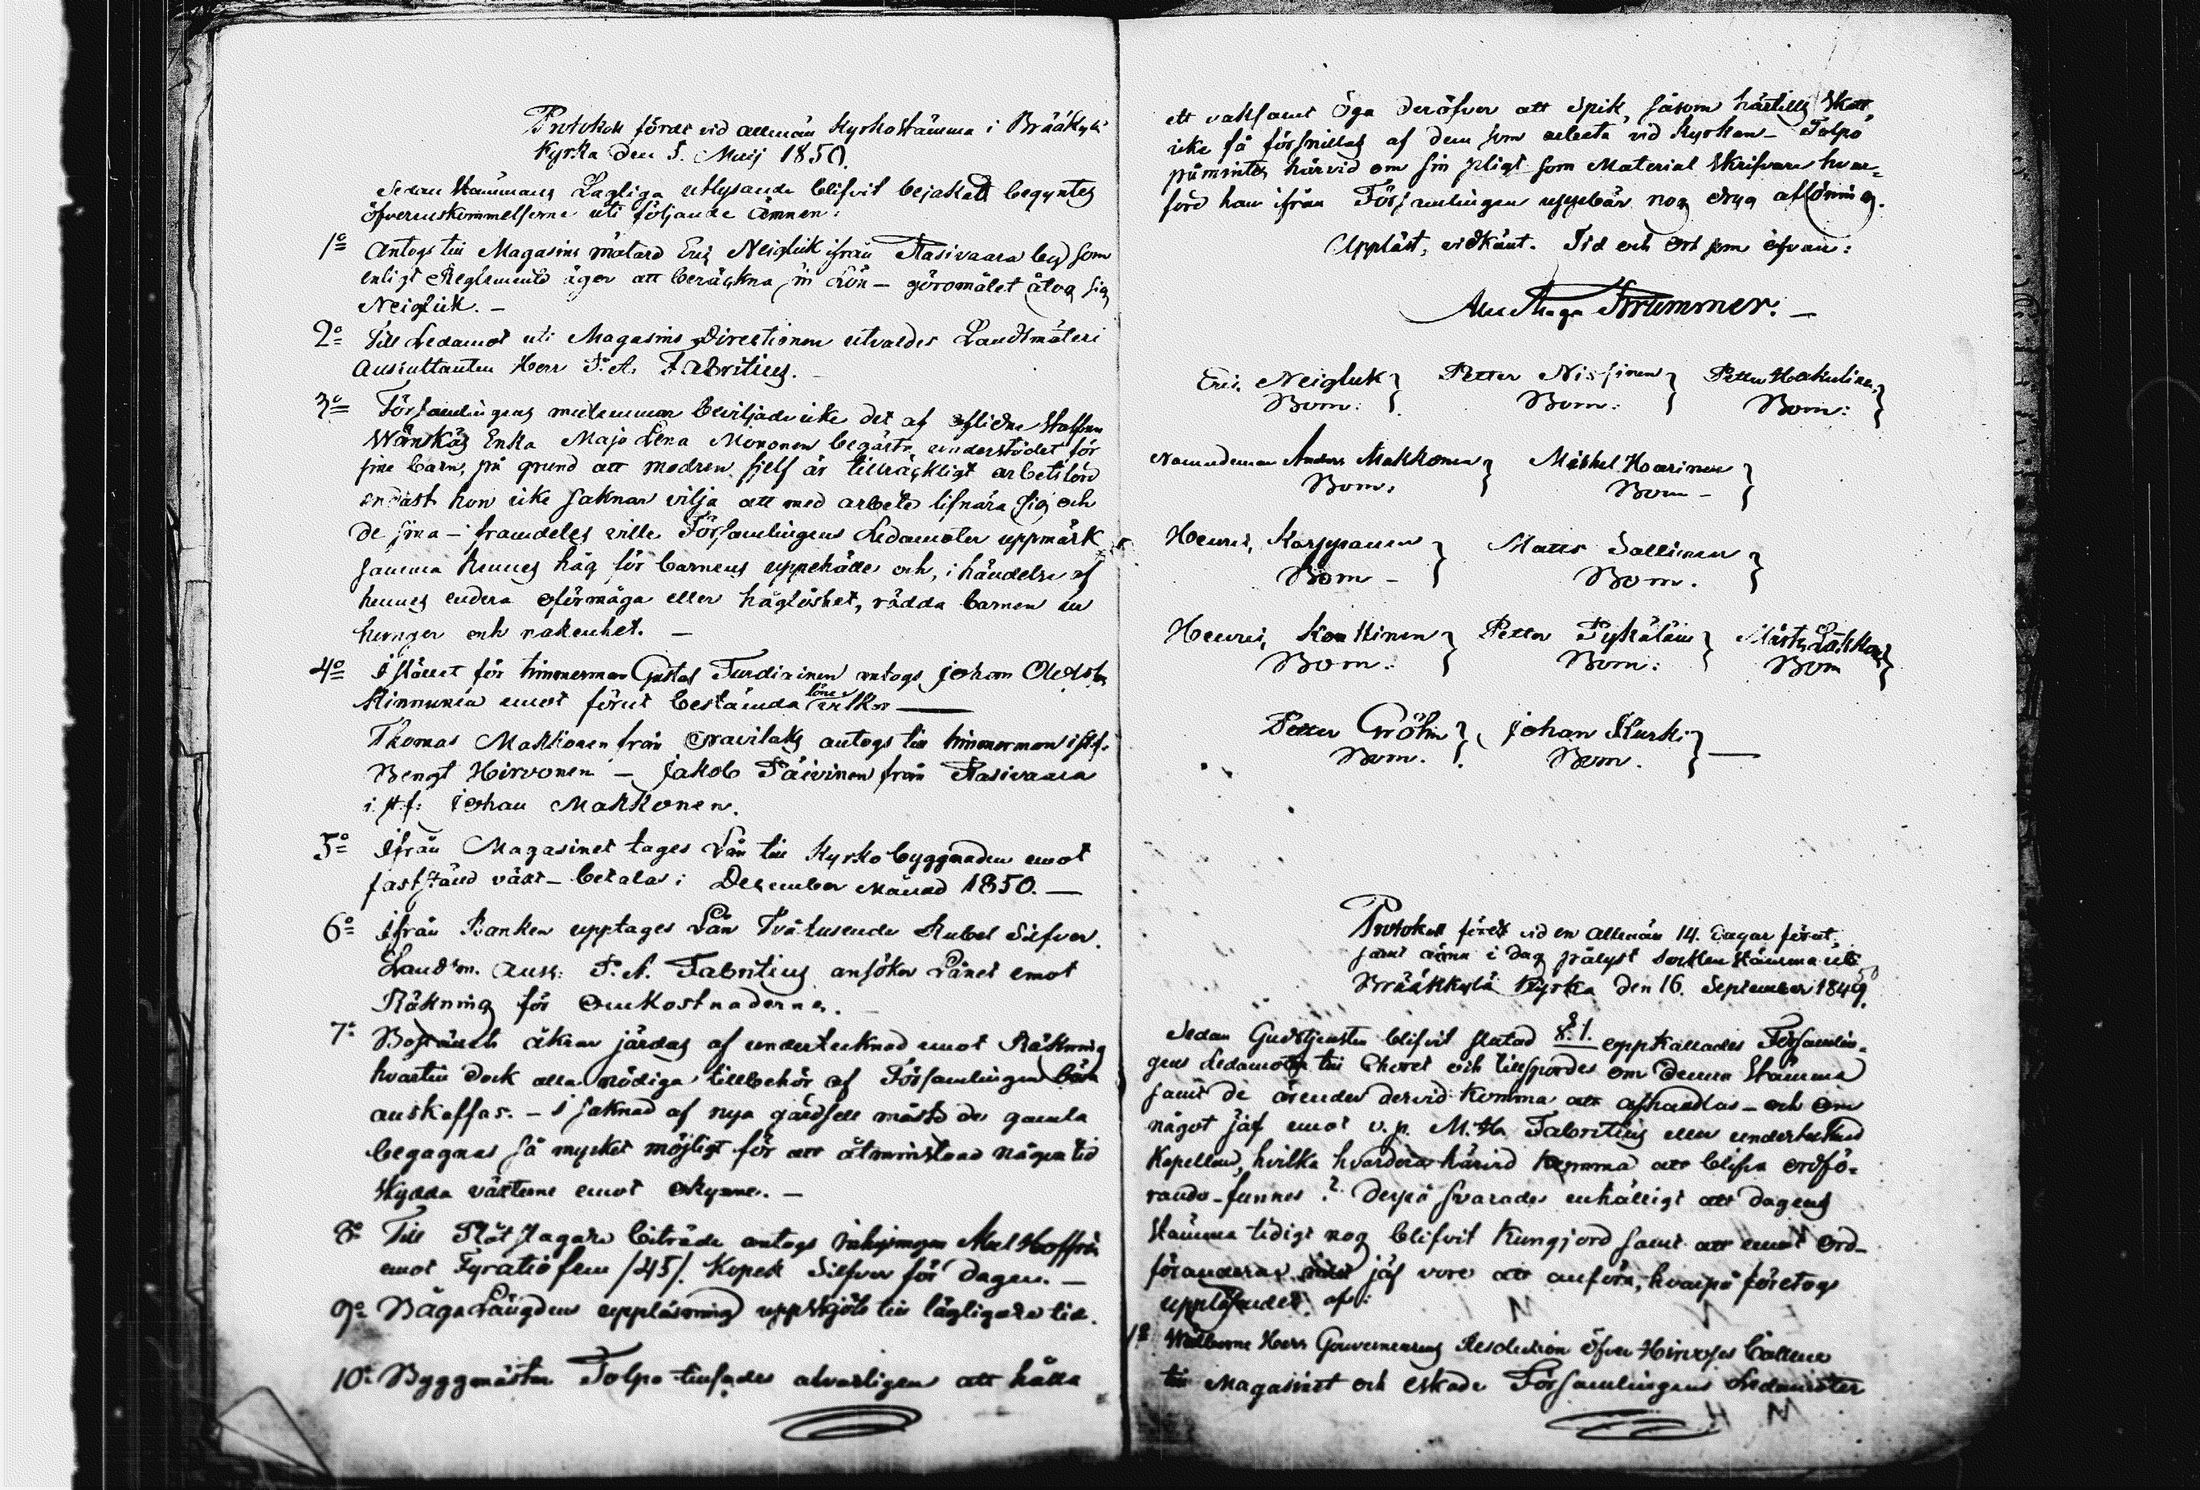 Protokoll fördt vid allmän Kyrkostämma i Brääkylä
Kyrka den 5. Maij 1850.
Sedan Stämmans Lagliga utlysande blifvit bejakadt begyntes
öfverenskommelserne uti följande ämnen:
1o Antogs till Magasins mätare Eric Neigluk ifrån Rasivaara by som
enligt Reglemente äger att beräkna sin Lön – göromålet åtog sig
Neigluk. –
2o Till Ledamot uti Magasins Directionen utvaldes Landtmäteri
Auscultanten Herr P. A. Fabritius. –
3o Församlingens medlemmar beviljade icke det af aflidne Staffan
Wänskäs Enka Maja Lena Mononen begärta understödet för
sine barn, på grund att modren sjelf är tillräckligt arbetsför
endast hon icke saknar vilja att med arbete lifnära sig och
de sina – framdeles ville Församlingens Ledamöter uppmärk
samma hennes håg för barnens uppehälle och, i händelse af
hennes endera oförmåga eller håglöshet, rädda barnen ur
hunger och nakenhet. –
4o I stället för timmerman Gustaf Turdiainen antogs Johan
Kinnunen emot förut bestämda löne vilkor –
Thomas Makkonen från Oravilaks antogs till timmerman i st.f.
Bengt Hirvonen – Jakob Päivinen från Rasivaara
i st.f. Johan Makkonen.
5o Ifrån Magasinet tages Lån till Kyrkobyggnaden emot
fastställd växt – betala i December Månad 1850. –
6o Ifrån Banken upptages Lån Tvåtusende Rubel Silfver.
Landtm. Ausk: P. A. Fabritius ansöker Lånet emot
Räkning för Omkostnaderne.
7o Boställets åkrar gärdas af undertecknad emot Räkning
hvartill dock alla nödiga tillbehör af Församlingen bör
anskaffas. – I saknad af nya gärdsel måste de gamla
begagnas så mycket möjligt för att åtminstone någon tid
skydda växterne emot okynne. –
8o Till Rotfogare biträde antogs Abel Hoffrén
emot Fyratiofem /45/. Kopek Silfver för dagen. –
9o Båga Längdens uppläsning uppskjöts till lägligare tid.
10o Byggmästar Tolpo tillsades alvarligen att hålla
ett vaksamt öga deröfver att Spik, såsom härtills skett,
icke få förspillas af dem som arbeta vid Kyrkan – Tolpo
påmintes härvid om sin pligt som Material Skrifvare hvar-
före han ifrån Församlingen uppbär nog dryg aflöning.
Uppläst, vidkänt. Tid och Ort som ofvan:
Strömmer. –
Eric Neigluk} Petter Nissinen} Petter Hakulinen}
Bom: Bom: Bom:
Nämndeman Anders Makkonen} Mickel Hoarinen}
Bom. Bom –
Henric Karppanen} Matts Sallinen}
Bom – Bom.
Henric Konttinen} Petter Pykäläin} Mårten Laukkan}
Bom: Bom: Bom
Petter Gröhn} Johan Kurki} –
Bom. Bom.
Protokoll fördt vid en allmän 14. dagar förut,
samt ännu i dag pålyst Sockenstämma uti
Brääkkylä Kyrka den 16. September 1849.
50
Sedan Gudstjensten blifvit slutad § 1. uppkallades Församlin-
gens Ledamöter till Choret och tillspordes om denna Stämma
samt de ärender dervid komma att afhandlas – och om
något jäf emot v.p. M.H. Fabritius eller undertecknad
Kapellan, hvilka hvardera härvid komma att blifva ordfö-
rande – funnes? Derpå svarades enhälligt att dagens
Stämma tidigt nog blifvit kungjord samt att emot Ord-
föranderne intet jäf vore att anföra, hvarpå företogs
uppläsandet af:
1o Wälborne Herr Gouverneurens Resolution öfver Hirvosjos
till Magasinet och Församlingens Ledamöter